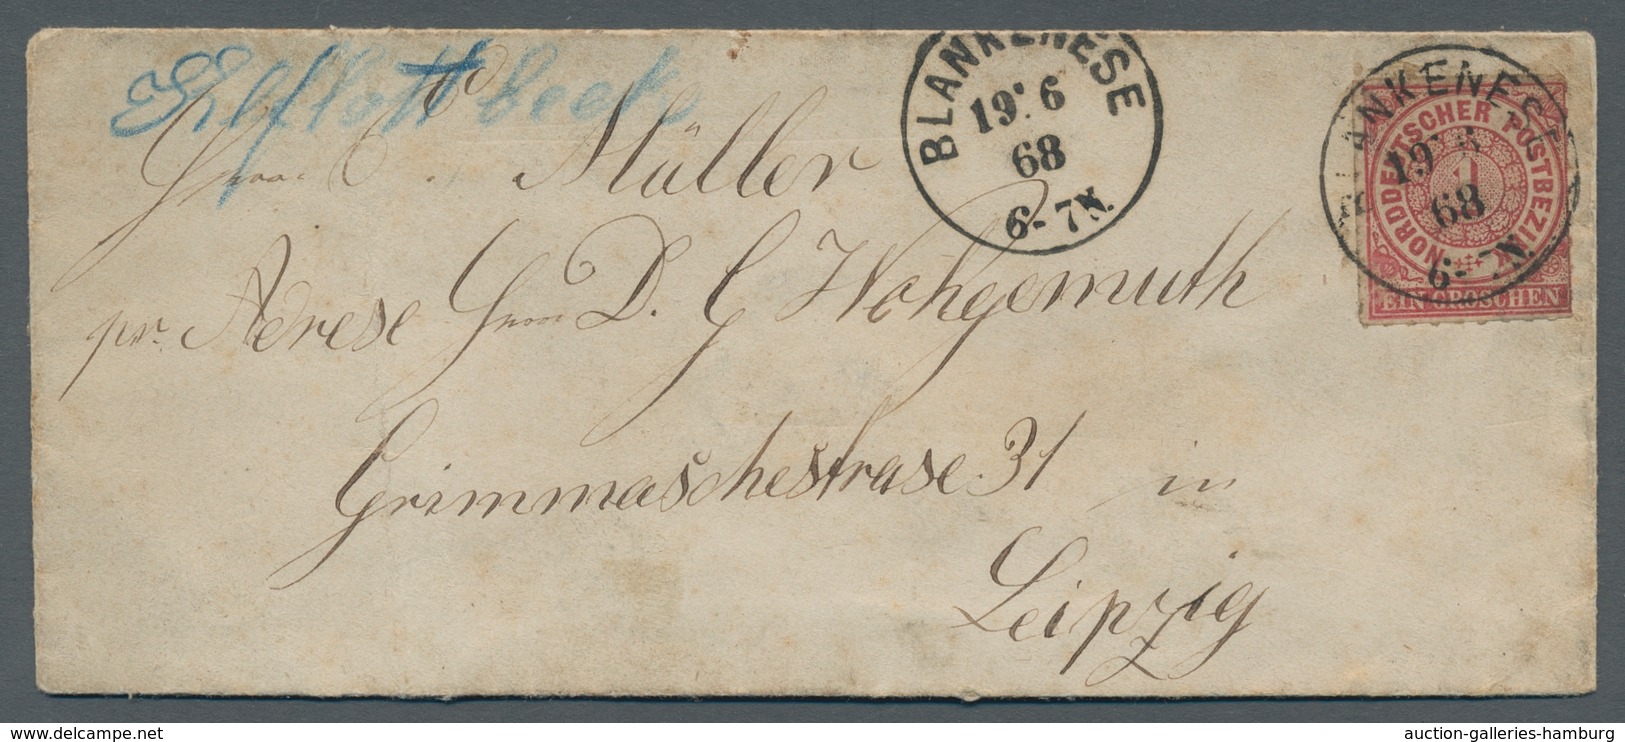 Elbflottbeck
Herrn C. Müller
pr. Adrese Herrn D. C Wohgemuth
Grimmaschestrase 31 in
Leipzig
BLANKENESE
19. 6
68
6-7N.
BLANKENESE
19. 6
68
6-7N.
NORDDEUTSCHER POSTBEZIRK
1
EIN GROSCHEN
www.delcampe.net
auction-galleries-hamburg